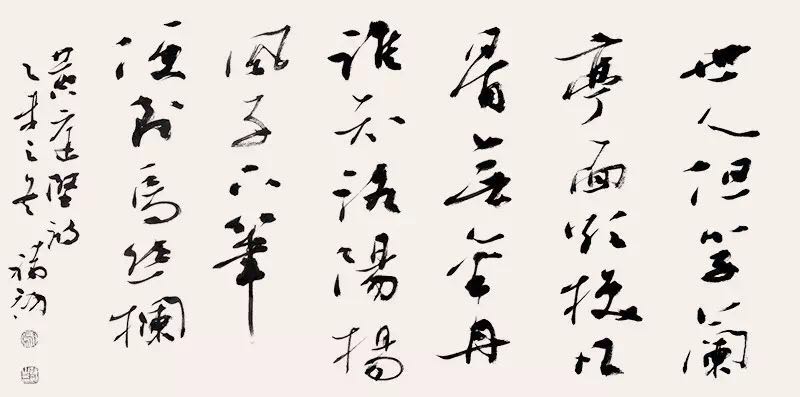 世人但學蘭
亭面欲換凡
骨無金丹
誰知洛陽楊
風子下筆
便到烏絲欄
黃庭堅詩
乙未之